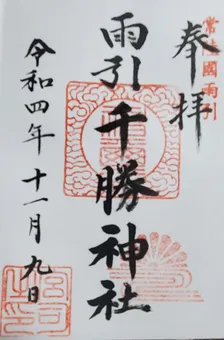 常陸國雨引
奉拝
雨引千勝神社
令和四年十一月九日